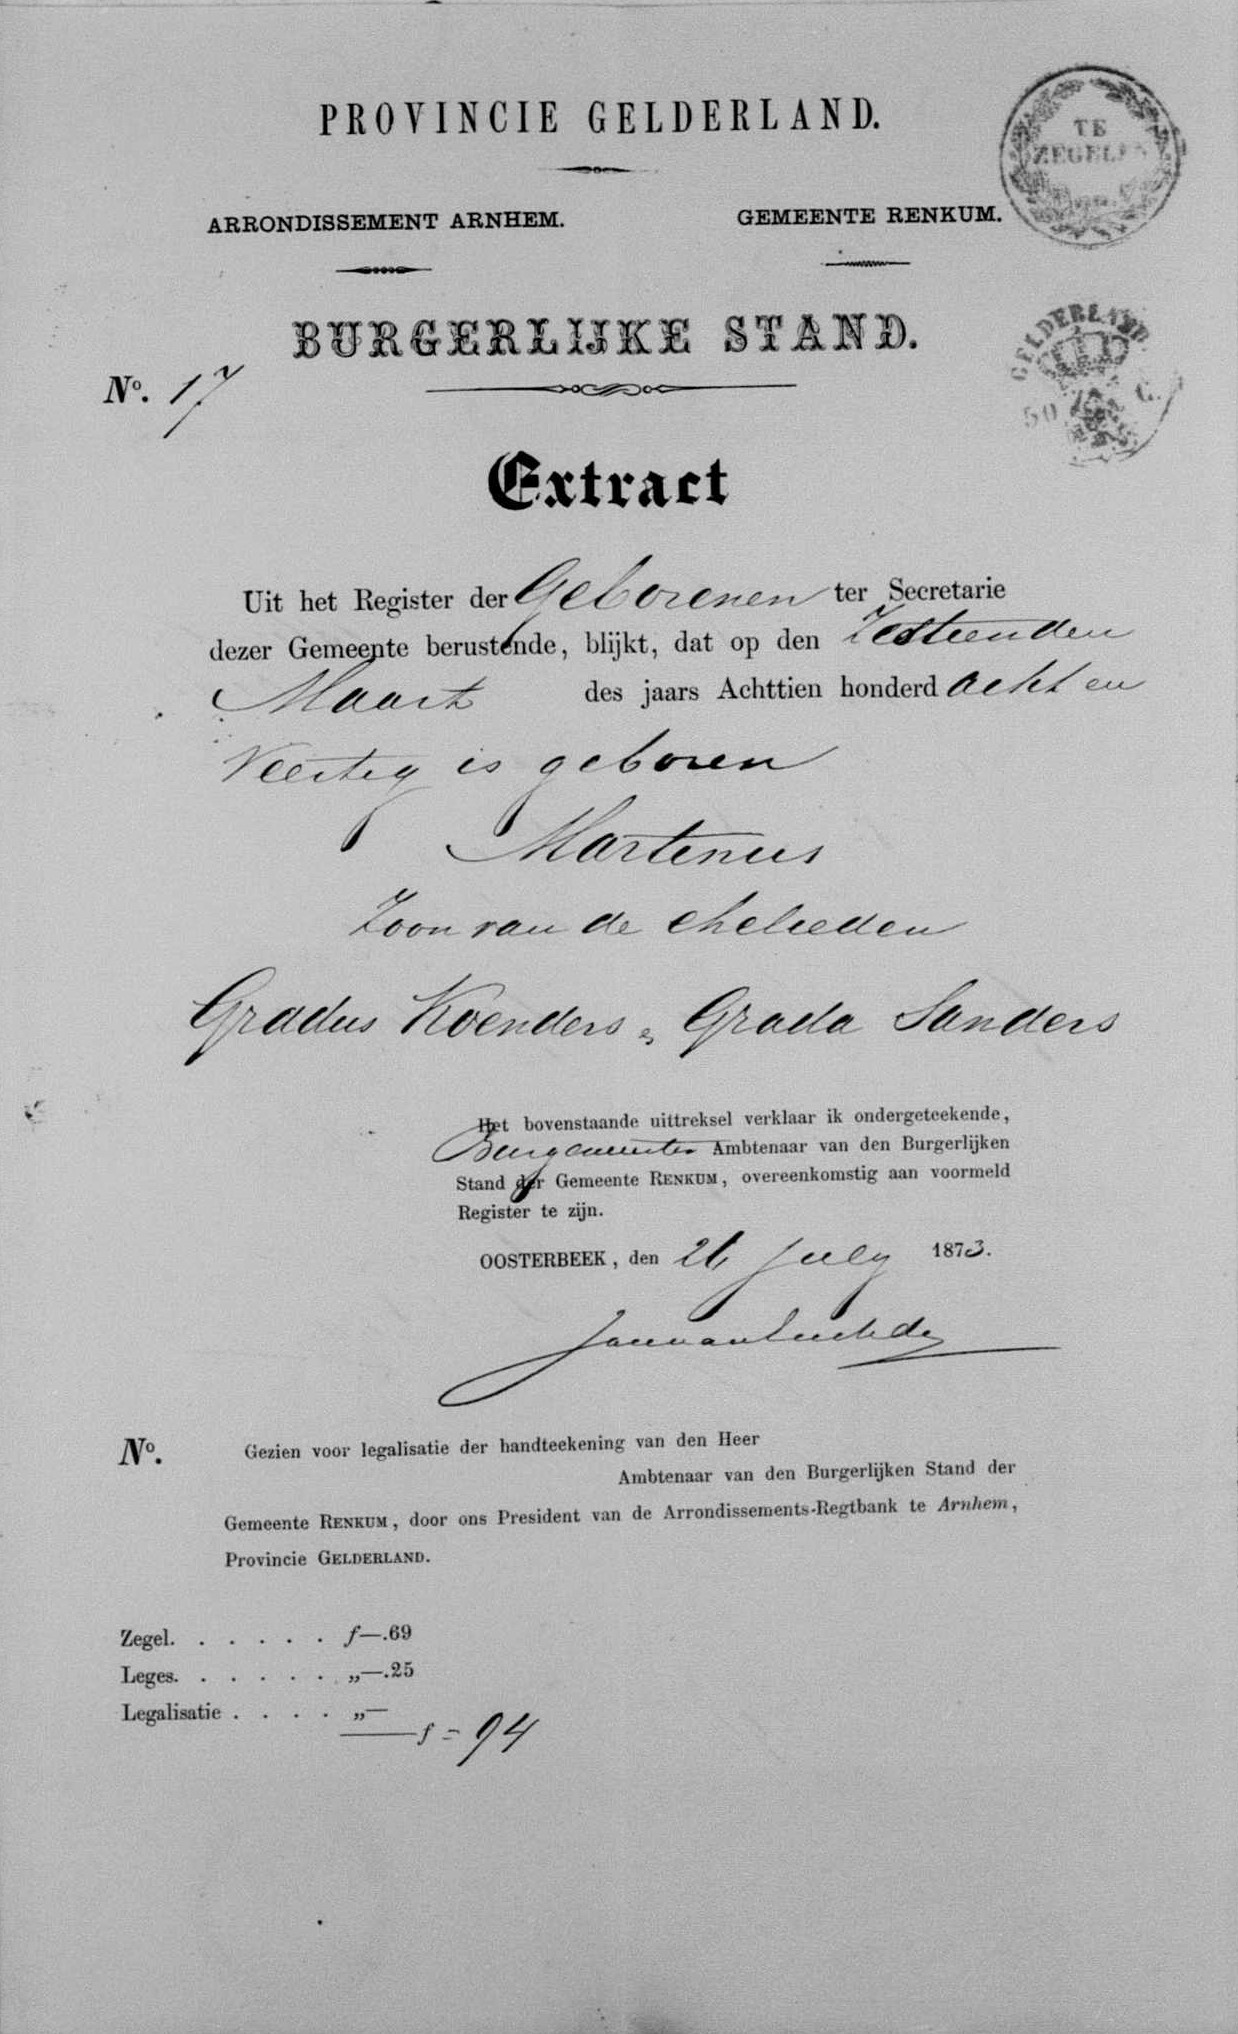 PROVINCIE GELDERLAND.
TE
ZEGELEN
ARRONDISSEMENT ARNHEM.
GEMEENTE RENKUM.
GELDERLAND
50 C.
BURGERLIJKE STAND.
No. 17
Extract
Uit het Register der Geborenen ter Secretarie
dezer Gemeente berustende, blijkt, dat op den Zestienden
Maart des jaars Achttien honderd Acht en
Veertig is geboren
Martinus
Zoon van de echelieden
Gradus Koenders & Grada Sanders
Het bovenstaande uittreksel verklaar ik ondergeteekende,
Burgemeester Ambtenaar van den Burgerlijken
Stand der Gemeente RENKUM, overeenkomstig aan voormeld
Register te zijn.
OOSTERBEEK, den 26 July 1873.
No.
Gezien voor legalisatie der handteekening van den Heer
Ambtenaar van den Burgerlijken Stand der
Gemeente RENKUM, door ons President van de Arrondissements-Regtbank te Arnhem,
Provincie GELDERLAND.
Zegel. . . . . . f—.69
Leges. . . . . . „—.25
Legalisatie . . . . „—
f = 94